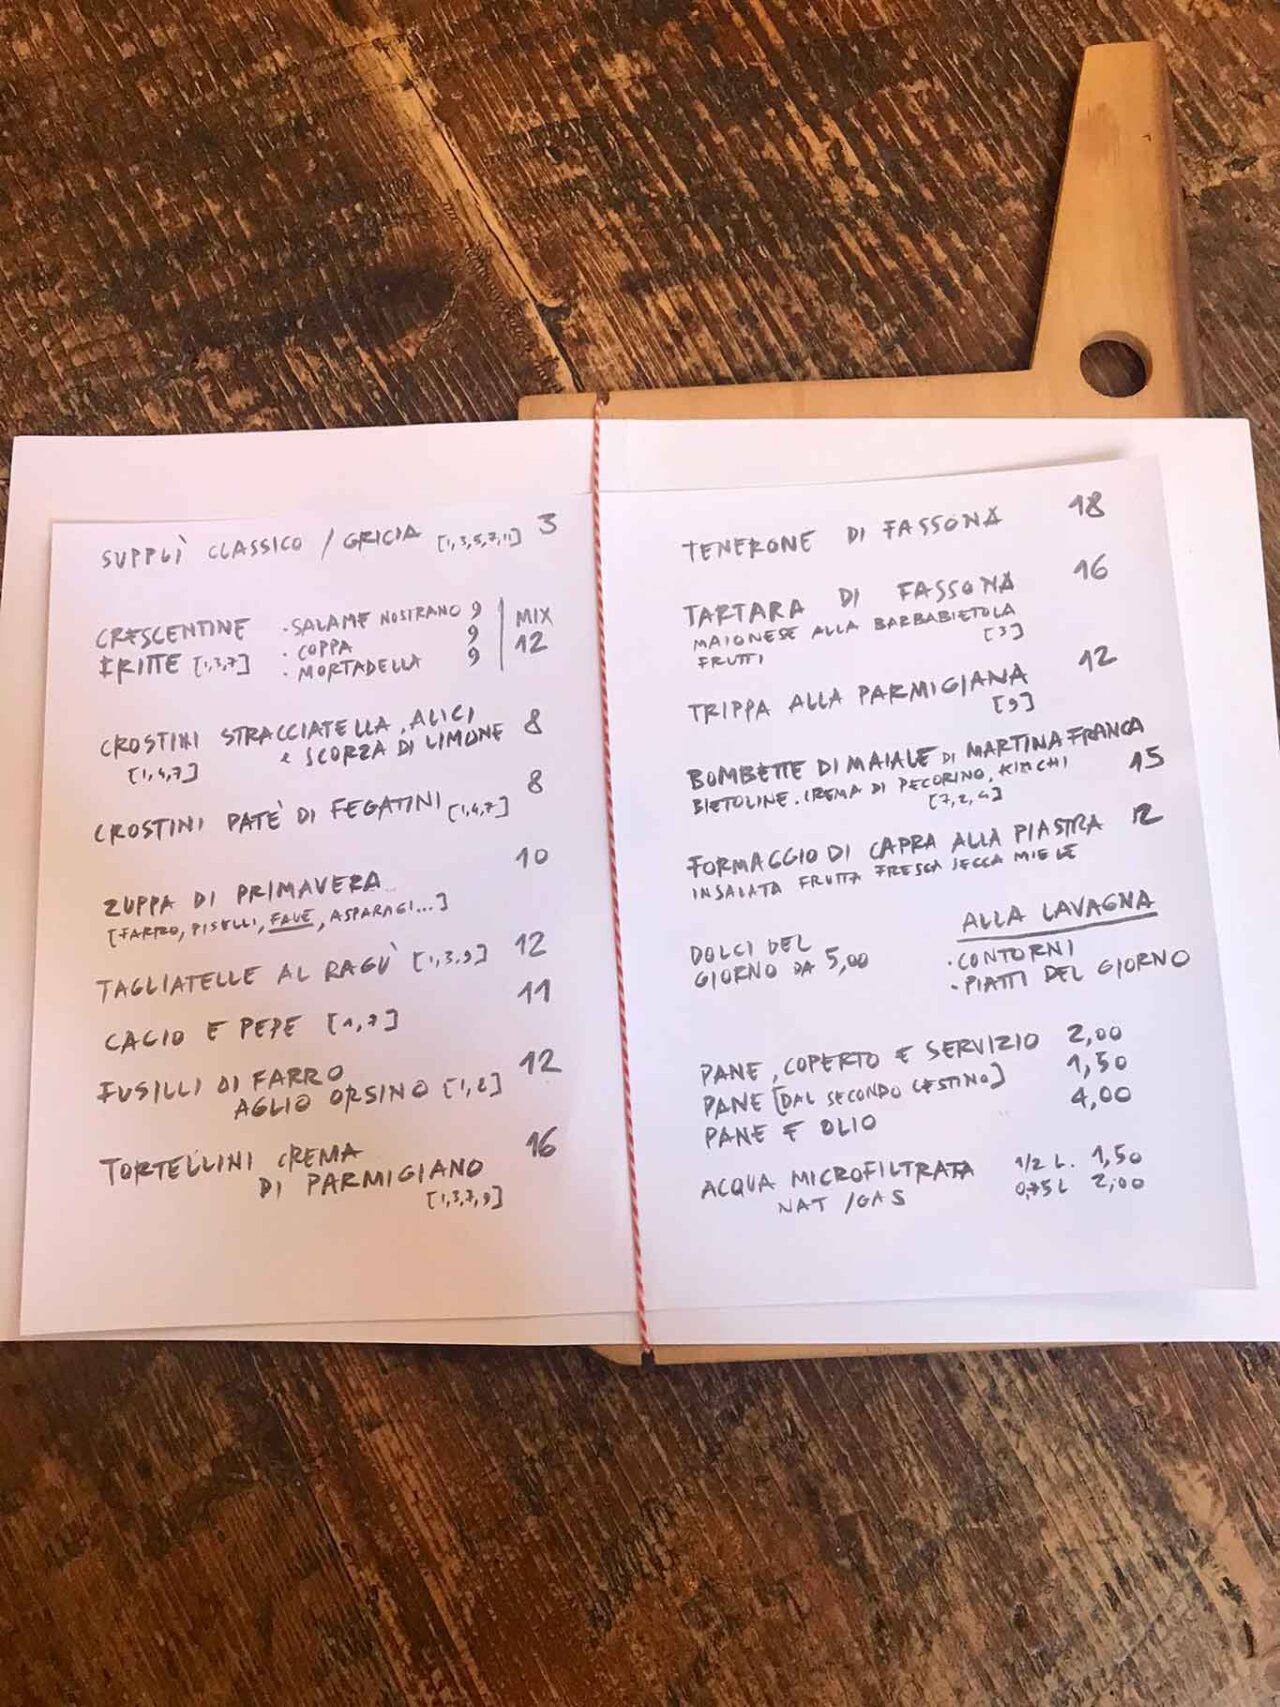 SUPPLÌ CLASSICO / GRICIA [1,3,5,7,11] 3
CRESCENTINE · SALAME NOSTRANO 9 | MIX
FRITTE [1,3,7] · COPPA 9 | 12
· MORTADELLA 9
CROSTINI STRACCIATELLA, ALICI 8
[1,4,7] E SCORZA DI LIMONE
CROSTINI PATÈ DI FEGATINI [1,4,7] 8
ZUPPA DI PRIMAVERA 10
[FARRO, PISELLI, FAVE, ASPARAGI...]
TAGLIATELLE AL RAGÙ [1,3,9] 12
CACIO E PEPE [1,7] 11
FUSILLI DI FARRO 12
AGLIO ORSINO [1,2]
TORTELLINI CREMA 16
DI PARMIGIANO
[1,3,7,9]
TENERONE DI FASSONA 18
TARTARA DI FASSONA 16
MAIONESE ALLA BARBABIETOLA
FRUTTI [3]
TRIPPA ALLA PARMIGIANA 12
[9]
BOMBETTE DI MAIALE DI MARTINA FRANCA
BIETOLINE. CREMA DI PECORINO, KIMCHI 15
[7,2,4]
FORMAGGIO DI CAPRA ALLA PIASTRA 12
INSALATA FRUTTA FRESCA SECCA MIELE
DOLCI DEL
GIORNO DA 5,00
ALLA LAVAGNA
· CONTORNI
· PIATTI DEL GIORNO
PANE, COPERTO E SERVIZIO 2,00
PANE [DAL SECONDO CESTINO] 1,50
PANE E OLIO 4,00
ACQUA MICROFILTRATA 1/2 L. 1,50
NAT /GAS 0,75 L 2,00